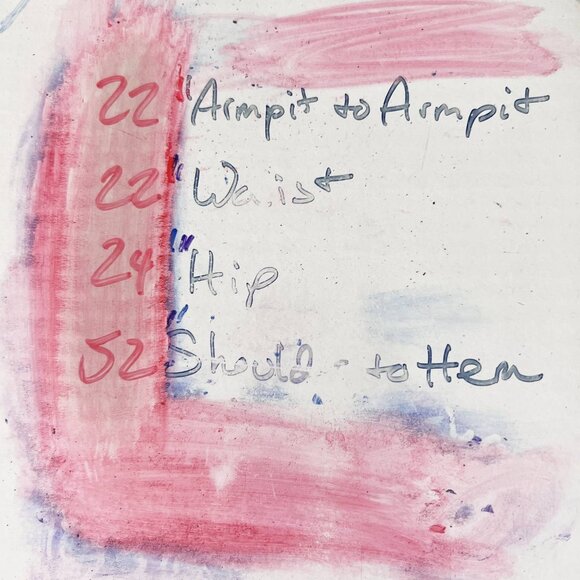 22" Armpit to Armpit
22" Waist
24" Hip
52" Should - to Hem